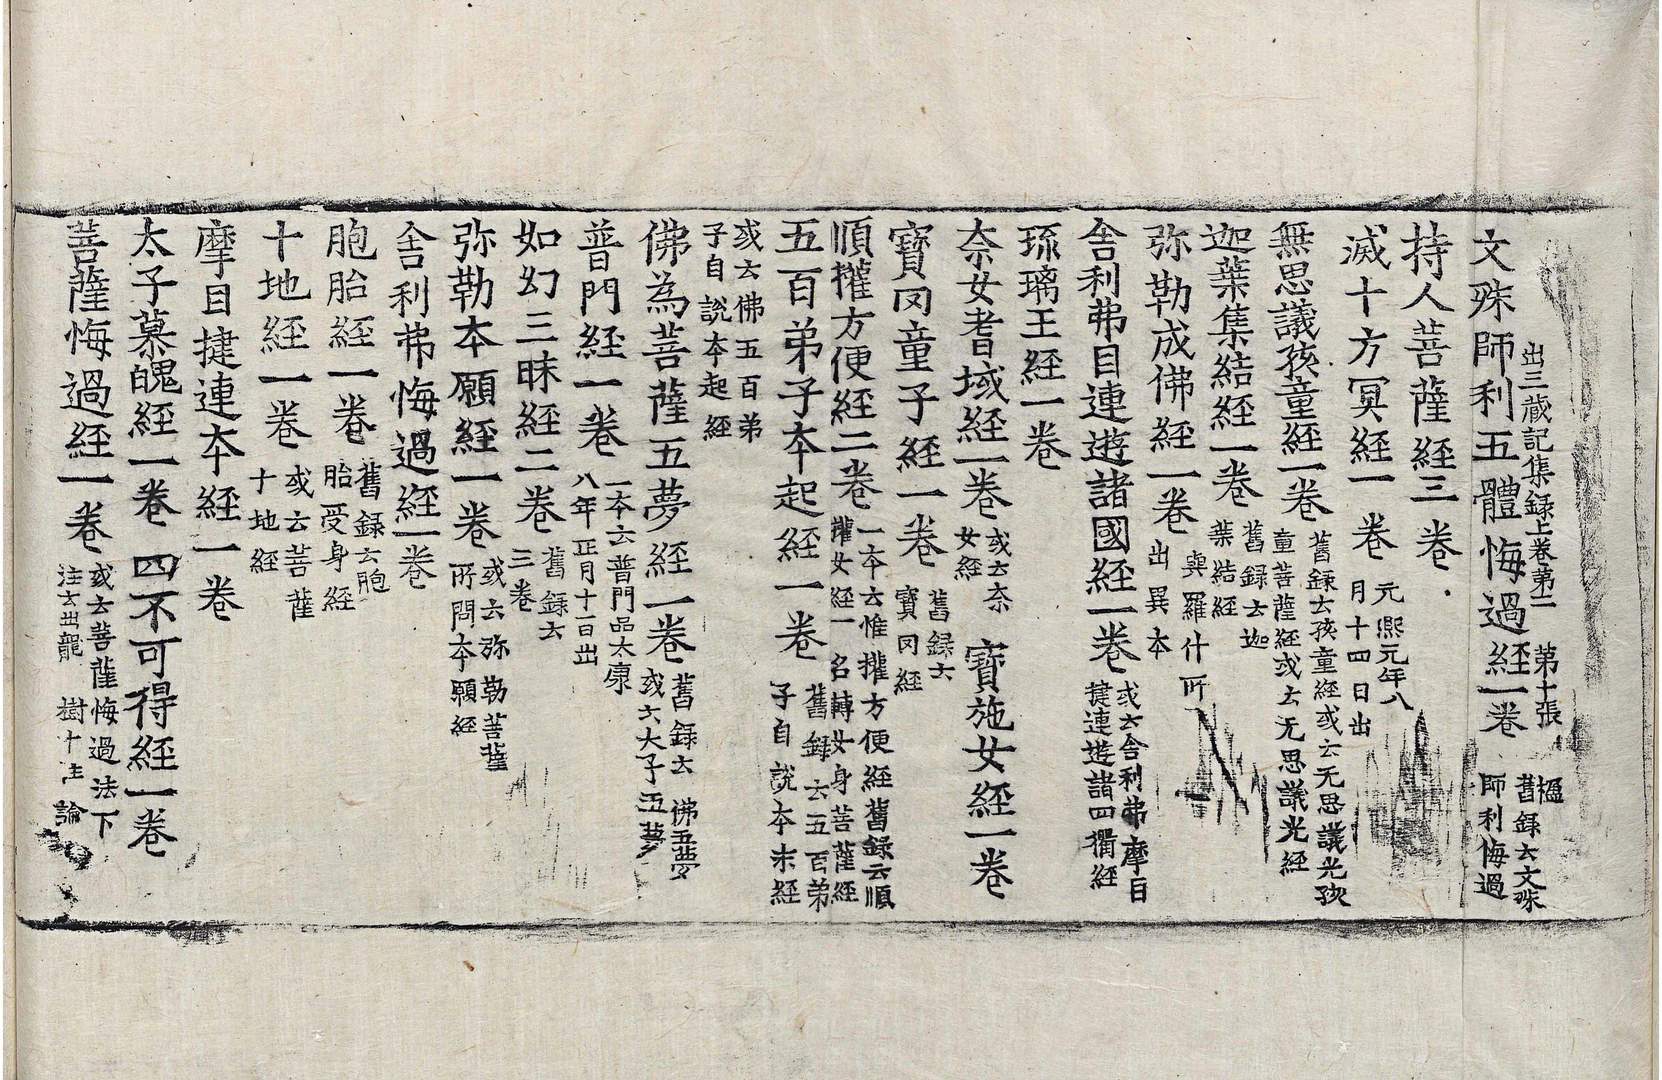 出三藏記集錄上卷第二　第十張　楹
文殊師利五體悔過經一卷 舊錄云文殊師利悔過
持人菩薩經三卷
滅十方冥經一卷 元熙元年八月十四日出
無思議孩童經一卷 舊錄云孩童經或云无思議光孩童菩薩經或云无思議光經
迦葉集結經一卷 舊錄云迦葉結經
弥勒成佛經一卷 與羅什所出異本
舍利弗目連遊諸國經一卷 或云舍利弗摩目揵連遊諸四衢經
琉璃王經一卷
奈女耆域經一卷 或云奈女經 寶施女經一卷
寶罔童子經一卷 舊錄云寶罔經
順權方便經二卷 一本云惟權方便經舊錄云順權女經一名轉女身菩薩經
五百弟子本起經一卷 舊錄云五百弟子自說本末經
或云佛五百弟子自說本起經
佛為菩薩五夢經一卷 舊錄云佛五夢或云太子五夢
普門經一卷 一本云普門品太康八年正月十一日出
如幻三昧經二卷 舊錄云三卷
弥勒本願經一卷 或云弥勒菩薩所問本願經
舍利弗悔過經一卷
胞胎經一卷 舊錄云胞胎受身經
十地經一卷 或云菩薩十地經
摩目揵連本經一卷
太子慕魄經一卷 四不可得經一卷
菩薩悔過經一卷 或云菩薩悔過法下注云出龍樹十住論